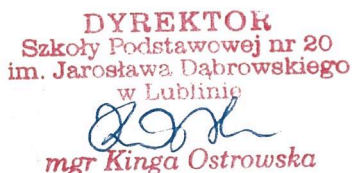 DYREKTOR
Szkoły Podstawowej nr 20
im. Jarosława Dąbrowskiego
w Lublinie
mgr Kinga Ostrowska